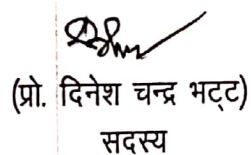 (प्रो. दिनेश चन्द्र भट्ट)
सदस्य